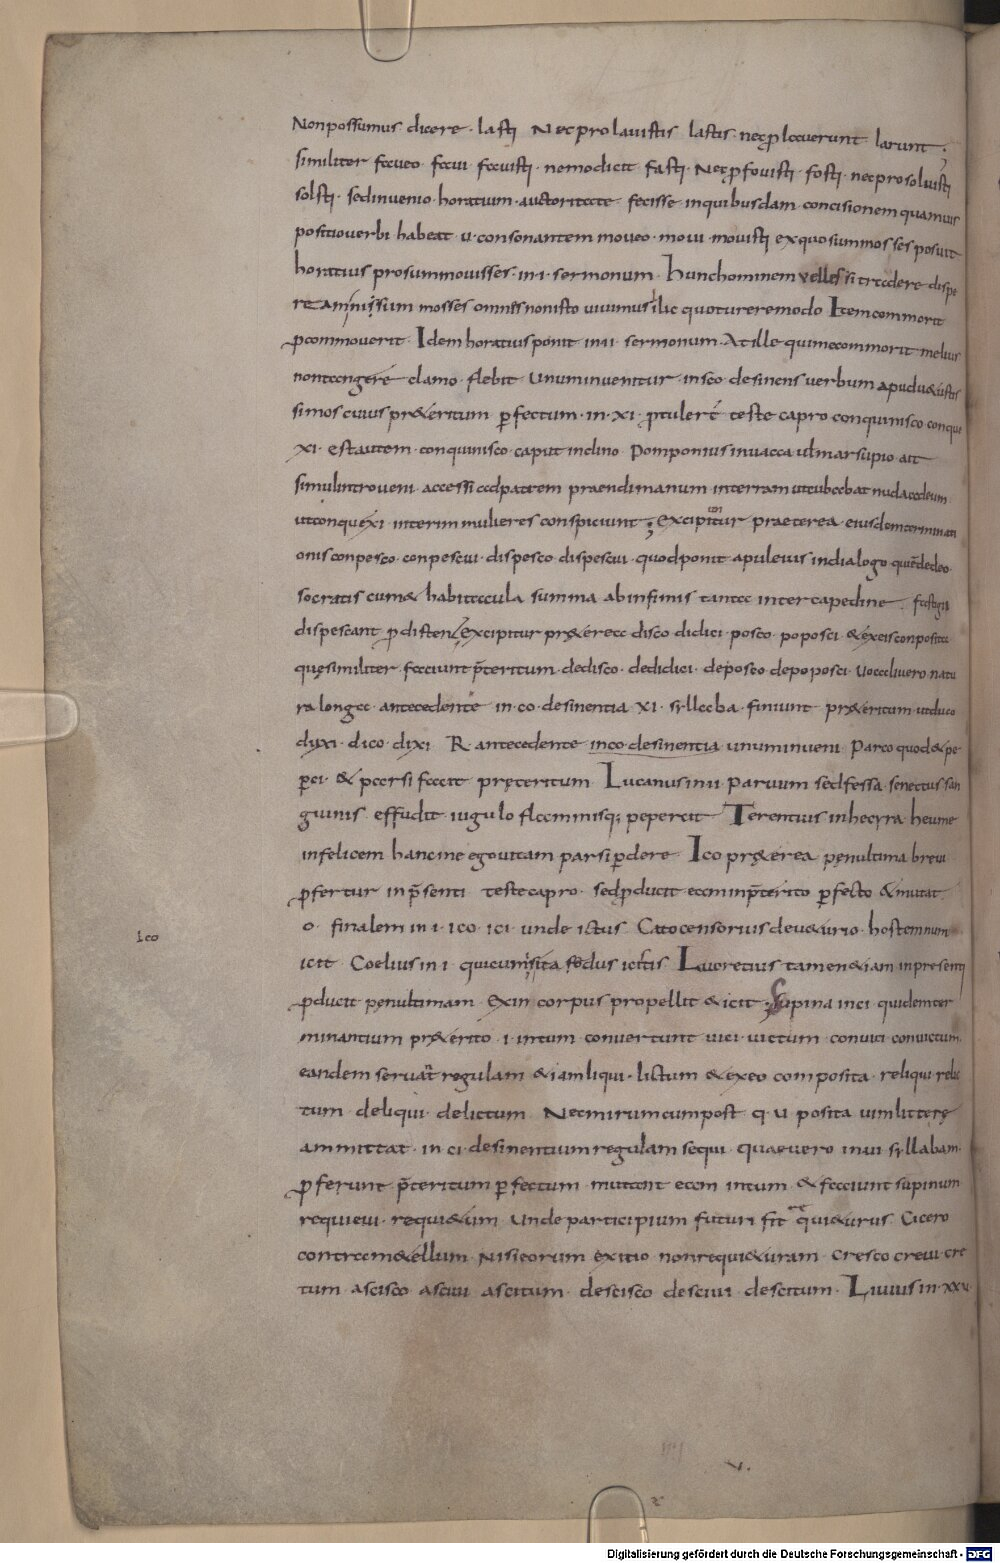 Non possumus dicere · lasti Nec pro lauistis lastis · nec ꝓ lauerunt larunt ·
similiter faueo · faui · fauisti · nemo dicit fasti · Nec ꝓ fouisti · fosti · nec pro soluisti
solsti · sed inuenio · horatium · auctoritate fecisse in quibusdam · concisionem quamuis
positio uerbi habeat · u · consonantem moueo · moui · mouisti ex quo summosses posuit
horatius pro summouisses · in · i · sermonum · Hunc hominem uelles si tradere dispe
ream ni summosses omnes non isto uiuimus illic quo tu rere modo Item commorit
ꝓ commouerit · Idem horatius ponit in · ii · sermonum · At ille qui me commorit melius
non tangere clamo · flebit Unum inuenitur in sco · desinens uerbum apud uetustis
simos cuius præteritum ꝑfectum · in · xi · ꝓtulerunt teste capro conquinisco · conque
xi · est autem · conquinisco · caput inclino Pomponius in uacca uł marsupio ait
simul introueni · accessi ad patrem praendi manum in terram ut cubabat nuda ad eum
ut conquexi · interim mulieres conspiciunt ; Excipitur praeterea · eiusdem terminati
onis conpesco · conpescui · dispesco dispescui · quod ponit apuleius in dialogo · qui ē de deo
socratis cum & habitacula summa ab infimis tanta intercapedine · fastigii
dispescant ꝓ disten Excipitur præterea disco didici · posco · poposci · & ex eis composita
quę similiter faciunt p̄teritum · dedisco · dedidici · deposco depoposci · uocali uero natu
ra longa · antecedente in · co · desinentia xi · syllaba · finiunt · præteritum · ut duco
duxi · dico · dixi · R · antecedente in co desinentia unum inueni · Parco quod & pe
perci · & parsi facit pręteritum · Lucanus in iii · Paruum sed fessa · senectus san
guinis effudit iugulo flamminisq; pepercit Terentius in hecyra heu me
infelicem hancine ego uitam parsi ꝑdere · Ico præterea pęnultima breui
ꝓfertur in p̄senti · teste capro · sed ꝓducit eam in p̄terito ꝑfecto & mutat
o · finalem in · i · ico · ici · unde ictus Cato censorius de ueturio · hostem num
Ico
icit · Coelius in · i · quicum ista fędus ictis Lucretius tamen etiam in presenti
ꝓducit pęnultimam Exin corpus propellit & icit · Supina in ci · quidem ter
minantium præterito · i · in tum conuertunt uici · uictum · conuici conuictum
eandem seruat regulam etiam liqui · lictum & ex eo composita · reliqui relic
tum · deliqui · delictum Nec mirum cum post q · u · posita uim litterę
ammittat · in · ci · desinentium regulam sequi · quae uero in ui · syllabam ·
ꝓferunt p̄teritum ꝑfectum · mutant eam in tum & faciunt supinum
requieui · requietum Unde participium futuri fit requieturus · Cicero
contra metellum · nisi eorum exitio non requieturam · Cresco creui · cre
tum · ascisco · asciui ascitum · descisco desciui · descitum · Liuius in · xxv
v.
Digitalisierung gefördert durch die Deutsche Forschungsgemeinschaft - DFG